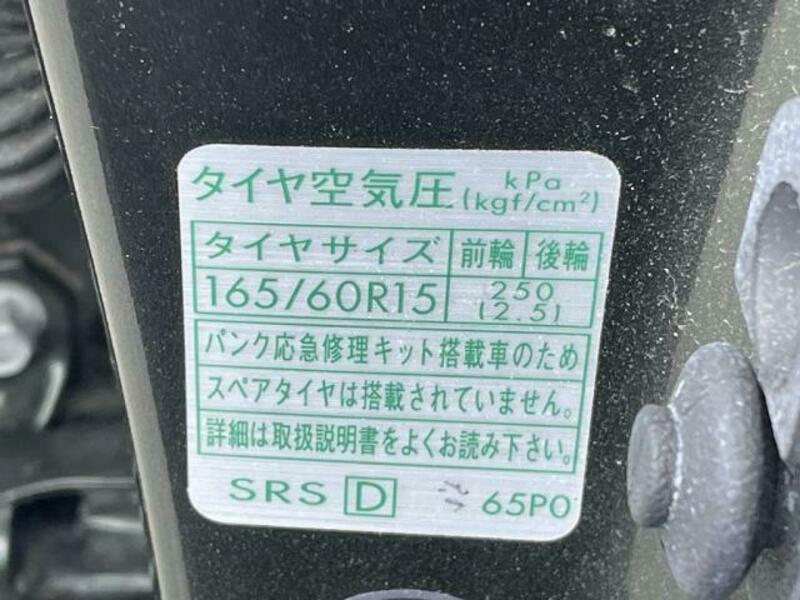 タイヤ空気圧 kPa
(kgf/cm²)
タイヤサイズ 前輪 後輪
165/60R15 250
(2.5)
パンク応急修理キット搭載車のため
スペアタイヤは搭載されていません。
詳細は取扱説明書をよくお読み下さい。
SRS D 65P0